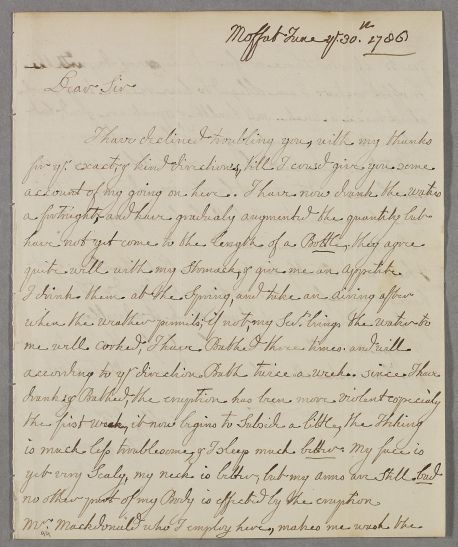 Moffat June ye. 30.th 1786
Dear Sir
I have declined troubling you, with my thanks
for yr. exact, & kind directions, till I coud give you some
account of my going on here. I have now drank the waters
a fortnight, and have gradualy augmented the quantity but
have not yet come to the length of a Bottle, they agree
quite well with my Stomach, & give me an appetite
I drink them at the Spring, and take an airing after
when the weather permits, if not, my Sert. brings the water to
me well corked, I have Bathed three times. and will
according to yr direction Bath twice a week. since I have
drank & Bathed, the eruption has been more violent especialy
the first week, it now begins to subside a little, the Itching
is much less troublesome, & I sleep much better. My face is
yet very Scaly, my neck is better, but my arms are still bad
no other part of my Body is effected by the eruption.
Mrs. Mackdonald who I employ here, makes me wash the